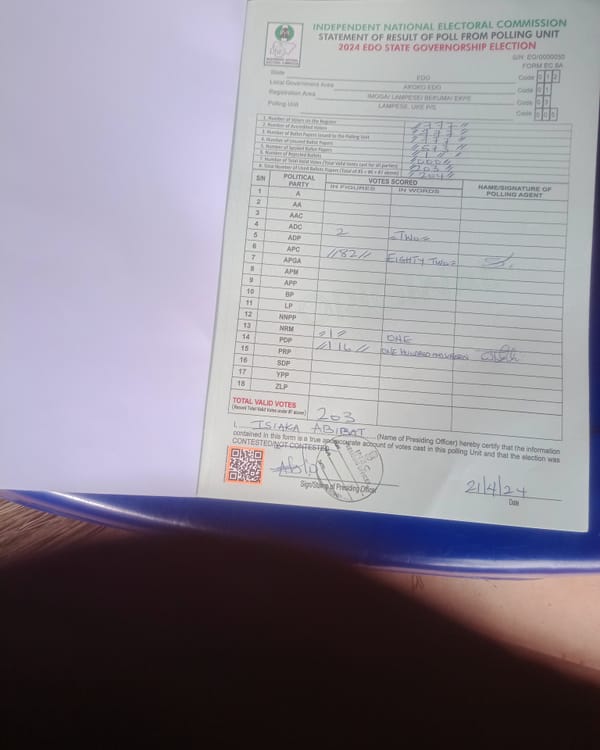 INDEPENDENT NATIONAL ELECTORAL COMMISSION
STATEMENT OF RESULT OF POLL FROM POLLING UNIT
2024 EDO STATE GOVERNORSHIP ELECTION
S/N: EO/0000030
FORM EC 8A
State EDO Code 0 1 2
Local Government Area AKOKO EDO Code 0 1
Registration Area IMOGA/ LAMPESE/ BEKUMA/ EKPE Code 0 3
Polling Unit LAMPESE, UKE P/S Code 0 0 5
1. Number of Voters on the Register 777
2. Number of Accredited Voters
3. Number of Ballot Papers Issued to the Polling Unit 777
4. Number of Unused Ballot Papers 573
5. Number of Spoiled Ballot Papers 1
6. Number of Rejected Ballots
7. Number of Total Valid Votes (Total Valid Votes cast for all parties) 203
8. Total Number of Used Ballots Papers (Total of #5 + #6 + #7 above) 204
S/N POLITICAL PARTY VOTES SCORED NAME/SIGNATURE OF POLLING AGENT
IN FIGURES IN WORDS
1 A
2 AA
3 AAC
4 ADC 2 TWO
5 ADP
6 APC 82 EIGHTY TWO
7 APGA
8 APM
9 APP
10 BP
11 LP
12 NNPP
13 NRM
14 PDP
15 PRP
16 SDP
17 YPP
18 ZLP
1 ONE
TOTAL VALID VOTES
(Record Total Valid Votes under #7 above)
203
I, ISIAKA ABIBAT (Name of Presiding Officer) hereby certify that the information
contained in this form is a true and accurate account of votes cast in this polling Unit and that the election was
CONTESTED/NOT CONTESTED
Sign/Stamp of Presiding Officer
21/4/24
Date